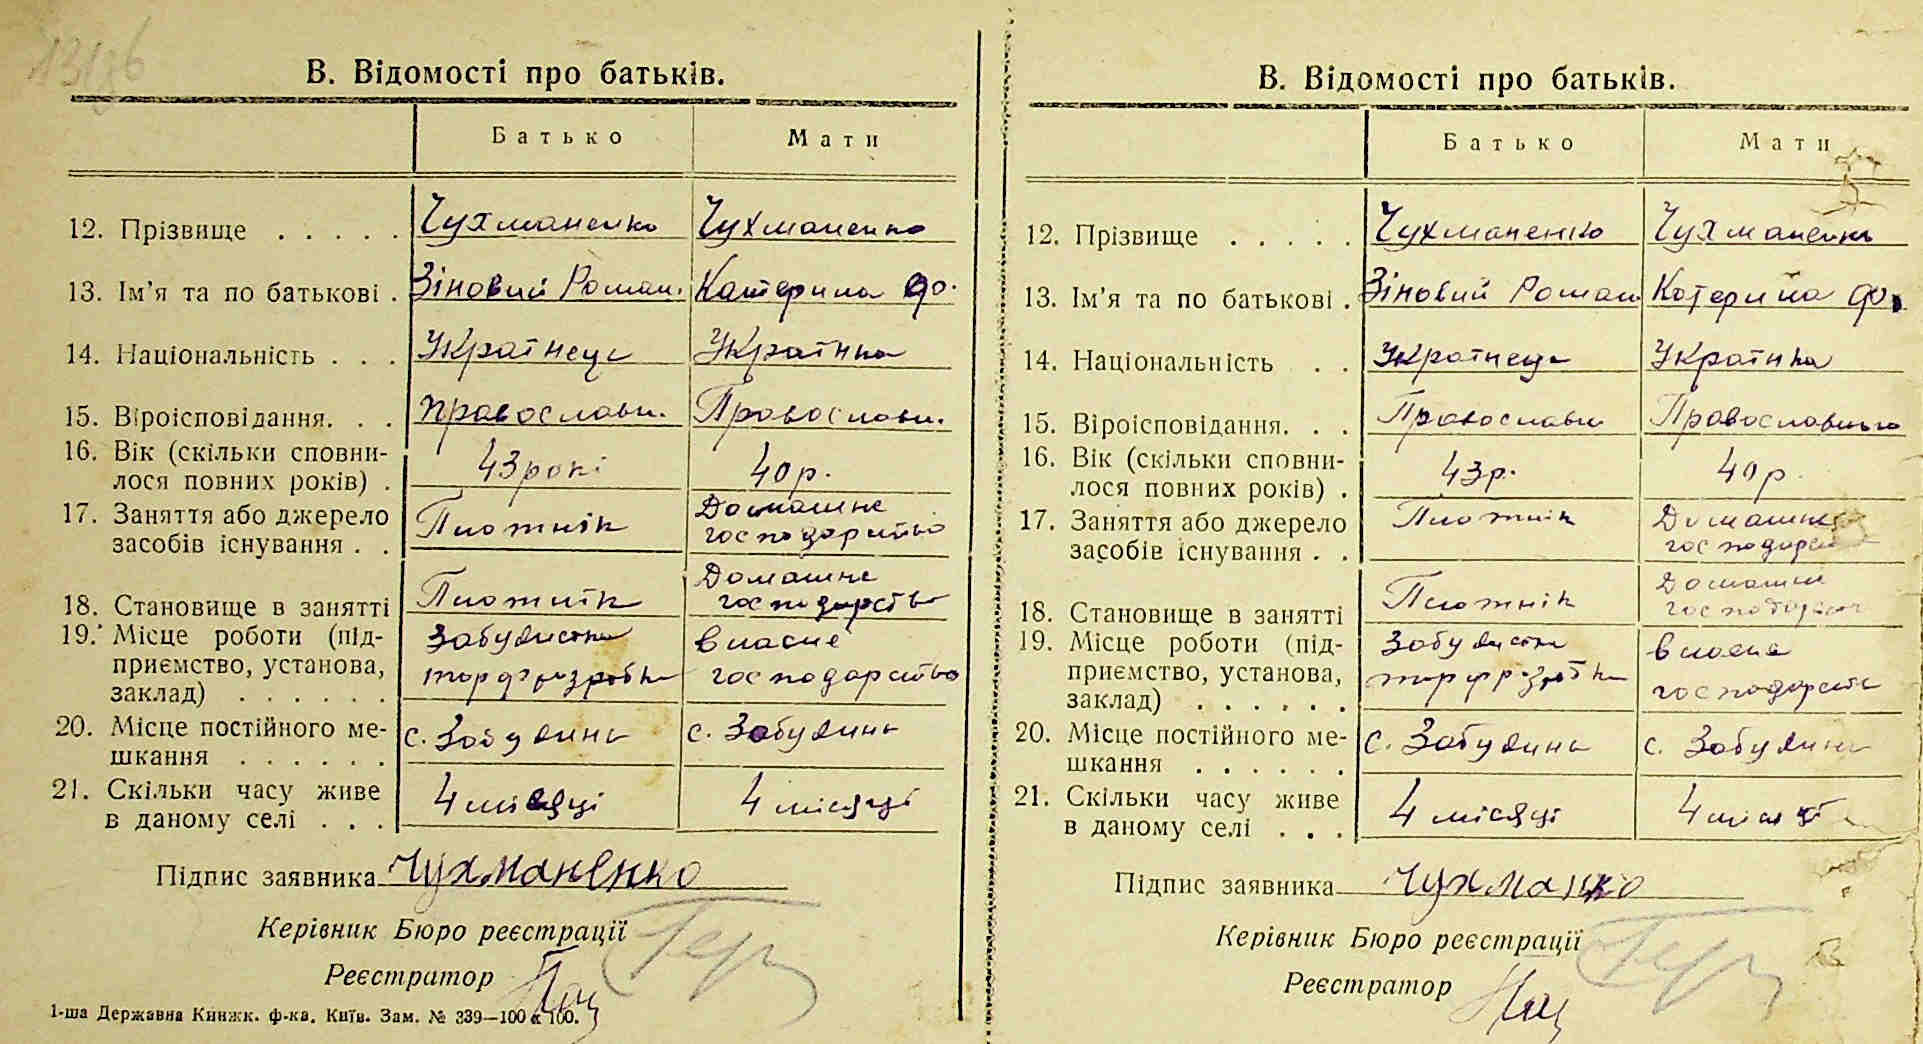 13/96
В. Відомості про батьків.
Батько Мати
12. Прізвище . . . . . Чухманенко Чухманенко
13. Ім’я та по батькові . Зіновий Роман. Катерина Фо.
14. Національність . . . Українець Українка
15. Віроісповідання. . . Православн. Православн.
16. Вік (скільки сповни-
лося повних років) . 43 рокі 40 р.
17. Заняття або джерело Домашне
засобів існування . . Плотнік господарство
Домашне
18. Становище в занятті Плотнік господарство
19. Місце роботи (під- Забудянска власне
приємство, установа, торфрозробка господарство
заклад) . . . . . .
20. Місце постійного ме- с. Забудянь с. Забудянь
шкання . . . . . .
21. Скільки часу живе 4 місяці 4 місяці
в даному селі . . .
Підпис заявника Чухманенко
Керівник Бюро реєстрації
Реєстратор
1-ша Державна Книжк. ф-ка, Київ. Зам. № 339—100 х 100.
В. Відомості про батьків.
Батько Мати
12. Прізвище . . . . . Чухманенко Чухманенко
13. Ім’я та по батькові . Зіновий Роман Катерина Фо.
14. Національність . . Українець Українка
15. Віроісповідання. . . Православн Православн
16. Вік (скільки сповни-
лося повних років) . 43 р. 40 р.
17. Заняття або джерело Плотнік Домашне
засобів існування . . господарст
Домашне
18. Становище в занятті Плотнік господарст
19. Місце роботи (під- Забудянска власне
приємство, установа, торфрозробка господарство
заклад) . . . . . .
20. Місце постійного ме- с. Забудянь с. Забудянь
шкання . . . . . .
21. Скільки часу живе 4 місяці 4 місяці
в даному селі . . .
Підпис заявника Чухманко
Керівник Бюро реєстрації
Реєстратор